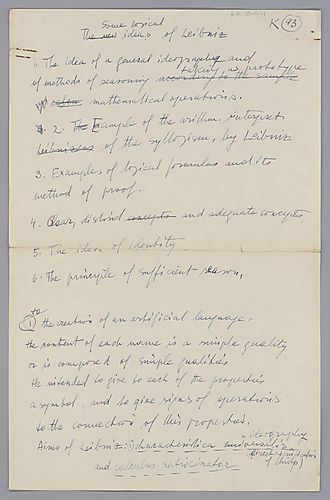 K 93
Some logical
The new ideas of Leibniz
1. The idea of a general ideography and
of methods of reasoning according to the sample
taking as prototype
mathematical operations.
2. The Example of the arithm. interpret.
of the syllogism, by Leibniz
3. Examples of logical formulas and its
method of proof.
4. Clear, distinct concepts and adequate concepts
5. The idea of identity
6. The principle of sufficient reason.
to
1 the creation of an artificial language.
the content of each name is a simple quality
or is composed of simple qualities
He intended to give to each of the properties
a symbol, and to give signs of operations
to the connection of this properties.
ideography
Aims of Leibniz: (1) characteristica universalis
(direct
of things)
and calculus ratiocinator